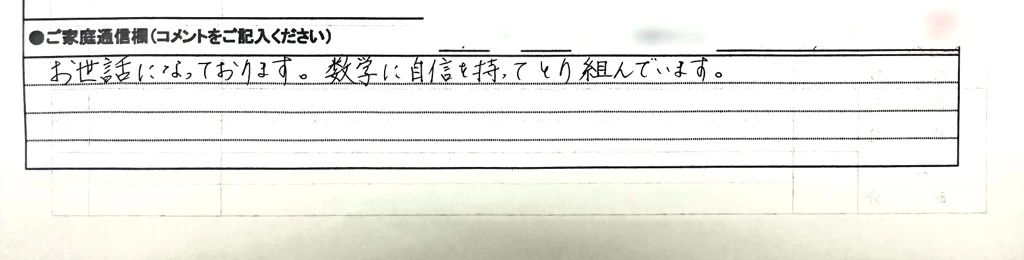 ●ご家庭通信欄(コメントをご記入ください)
お世話になっております。数学に自信を持ってとり組んでいます。